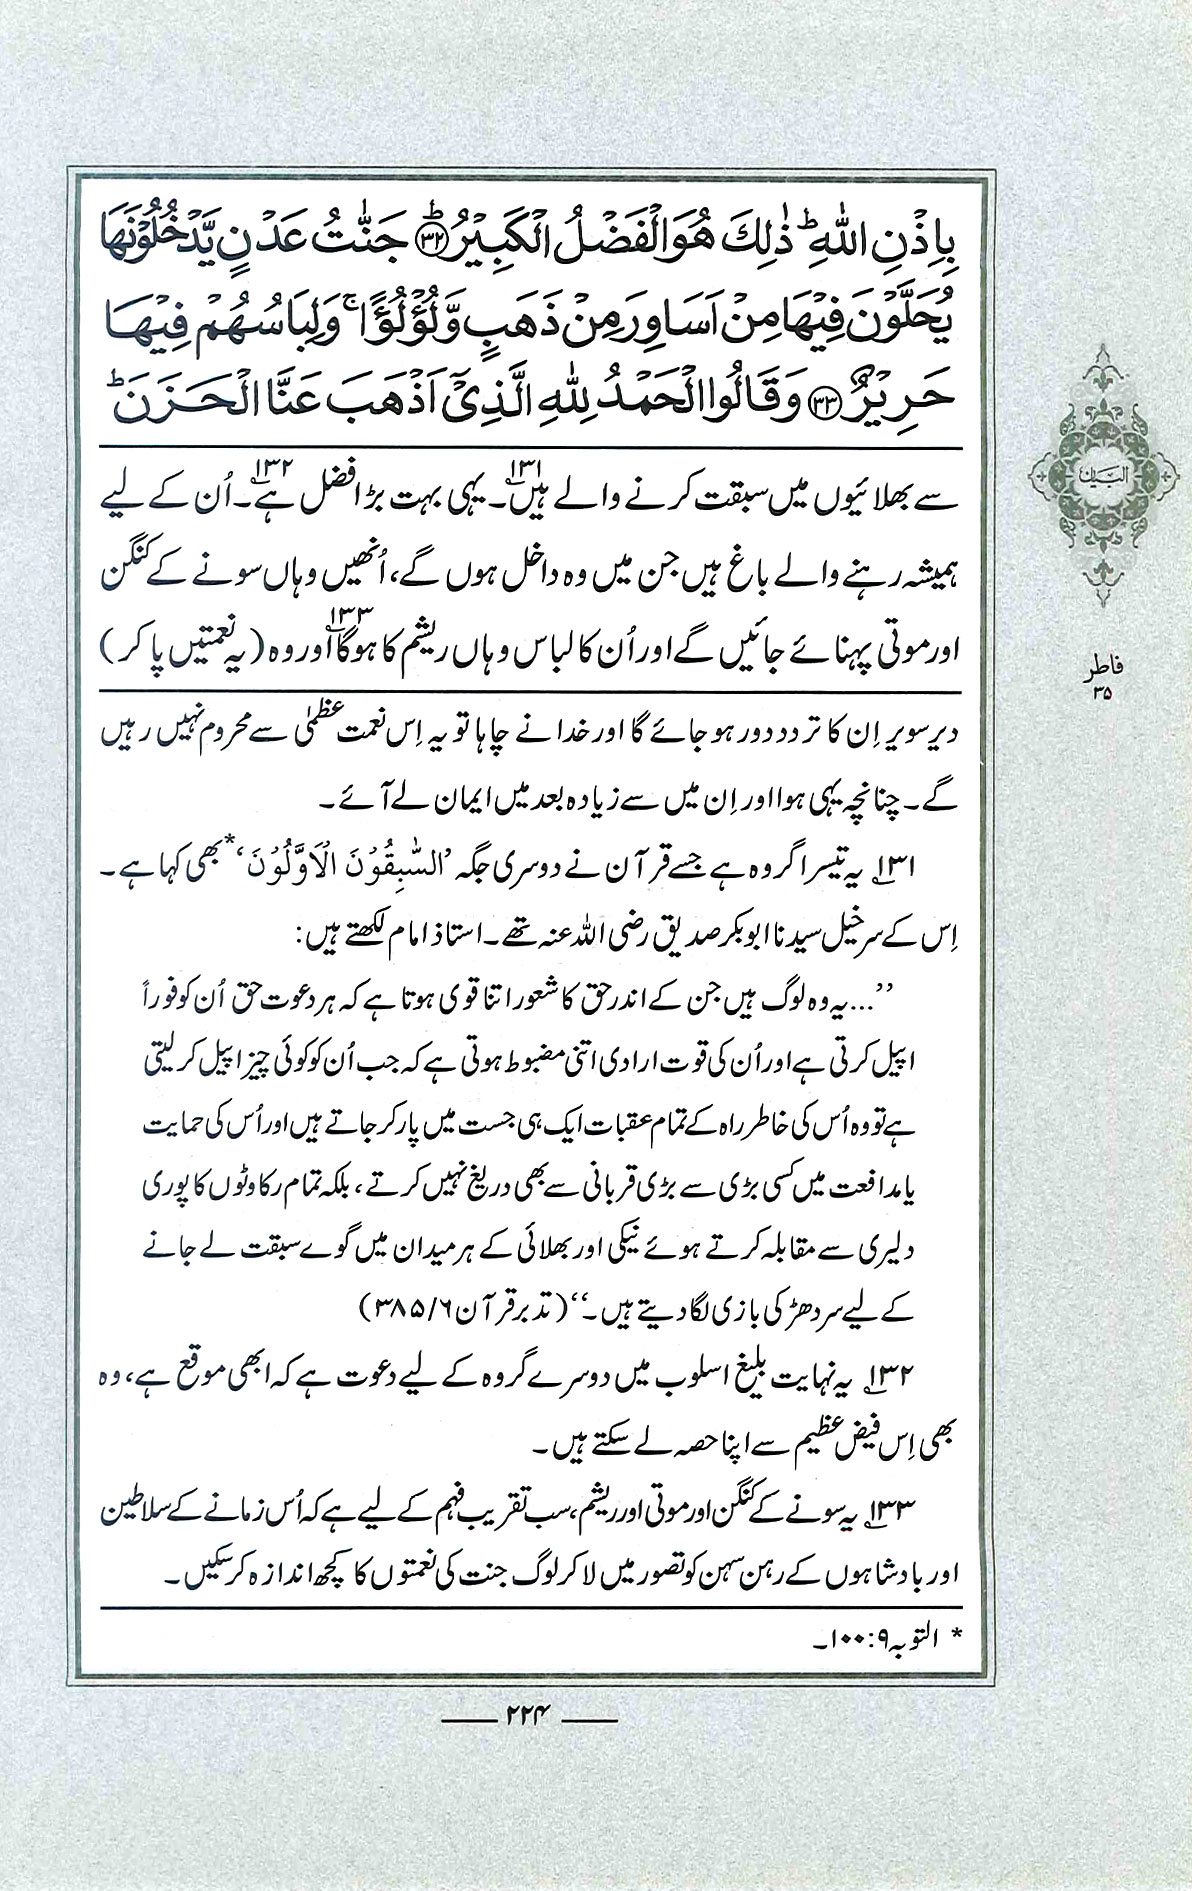 بِاِذْنِ اللّٰهِ ؕ ذٰلِكَ هُوَ الْفَضْلُ الْكَبِيْرُ ﴿۳۲﴾ؕ جَنّٰتُ عَدْنٍ يَّدْخُلُوْنَهَا
يُحَلَّوْنَ فِيْهَا مِنْ اَسَاوِرَ مِنْ ذَهَبٍ وَّلُؤْلُؤًا ۚ وَلِبَاسُهُمْ فِيْهَا
حَرِيْرٌ ﴿۳۳﴾ وَقَالُوا الْحَمْدُ لِلّٰهِ الَّذِيْٓ اَذْهَبَ عَنَّا الْحَزَنَ ؕ
سے بھلائیوں میں سبقت کرنے والے ہیں۱۳۱۔ یہی بہت بڑا فضل ہے۱۳۲۔ اُن کے لیے
ہمیشہ رہنے والے باغ ہیں جن میں وہ داخل ہوں گے، اُنھیں وہاں سونے کے کنگن
اور موتی پہنائے جائیں گے اور اُن کا لباس وہاں ریشم کا ہوگا۱۳۳ اور وہ (یہ نعمتیں پا کر)
دیر سویر اِن کا تردد دور ہو جائے گا اور خدا نے چاہا تو یہ اِس نعمت عظمیٰ سے محروم نہیں رہیں
گے۔ چنانچہ یہی ہوا اور اِن میں سے زیادہ بعد میں ایمان لے آئے۔
۱۳۱ یہ تیسرا گروہ ہے جسے قرآن نے دوسری جگہ ’السّٰبِقُوْنَ الْاَوَّلُوْنَ‘* بھی کہا ہے۔
اِس کے سرخیل سیدنا ابوبکر صدیق رضی اللہ عنہ تھے۔ استاذ امام لکھتے ہیں:
’’...یہ وہ لوگ ہیں جن کے اندر حق کا شعور اتنا قوی ہوتا ہے کہ ہر دعوت حق اُن کو فوراً
اپیل کرتی ہے اور اُن کی قوت ارادی اتنی مضبوط ہوتی ہے کہ جب اُن کو کوئی چیز اپیل کر لیتی
ہے تو وہ اُس کی خاطر راہ کے تمام عقبات ایک ہی جست میں پار کر جاتے ہیں اور اُس کی حمایت
یا مدافعت میں کسی بڑی سے بڑی قربانی سے بھی دریغ نہیں کرتے، بلکہ تمام رکاوٹوں کا پوری
دلیری سے مقابلہ کرتے ہوئے نیکی اور بھلائی کے ہر میدان میں گوے سبقت لے جانے
کے لیے سر دھڑ کی بازی لگا دیتے ہیں۔‘‘ (تدبر قرآن ۶/ ۳۸۵)
۱۳۲ یہ نہایت بلیغ اسلوب میں دوسرے گروہ کے لیے دعوت ہے کہ ابھی موقع ہے، وہ
بھی اِس فیض عظیم سے اپنا حصہ لے سکتے ہیں۔
۱۳۳ یہ سونے کے کنگن اور موتی اور ریشم، سب تقریب فہم کے لیے ہے کہ اُس زمانے کے سلاطین
اور بادشاہوں کے رہن سہن کو تصور میں لا کر لوگ جنت کی نعمتوں کا کچھ اندازہ کر سکیں۔
* التوبہ ۹: ۱۰۰۔
۲۲۴
البیان
فاطر
۳۵